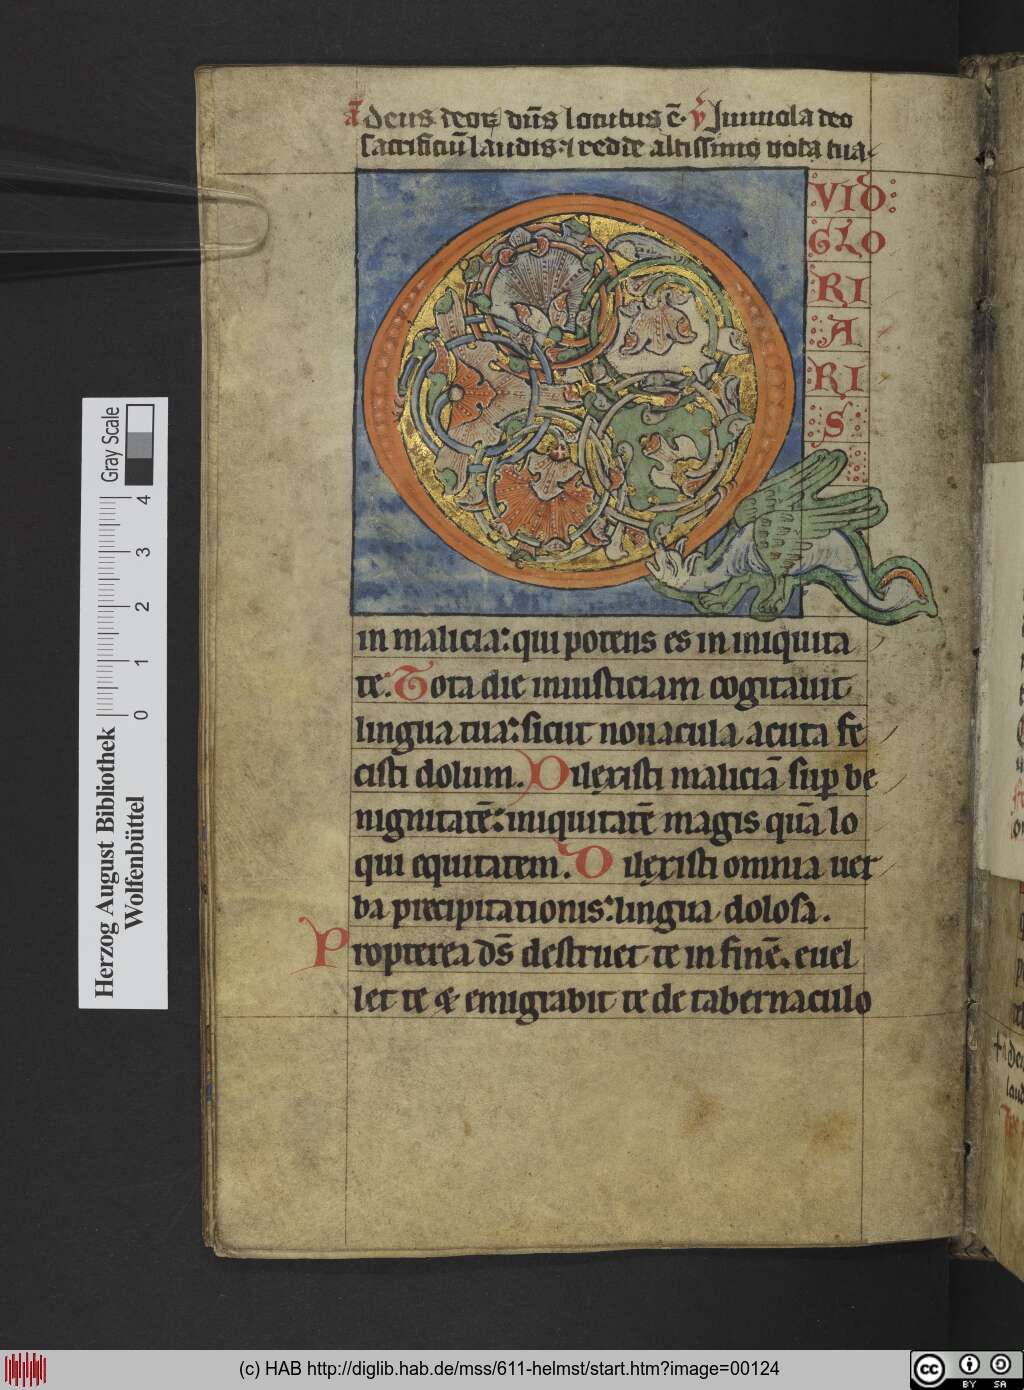 A Deus deoꝝ dn̄s locutus ē. V Immola deo
sacrificiū laudis: ⁊ redde altissimo vota tua.
Q
VID
GLO
RI
A
RI
S
in malicia: qui potens es in iniquita
te. Tota die iniusticiam cogitauit
lingua tua: sicut nouacula acuta fe
cisti dolum. Dilexisti maliciā sup be
nignitatē: iniquitatē magis quā lo
qui equitatem. Dilexisti omnia uer
ba precipitationis: lingua dolosa.
Propterea ds̄ destruet te in finē. euel
let te & emigrabit te de tabernaculo
Herzog August Bibliothek
Wolfenbüttel
Gray Scale
0 1 2 3 4
(c) HAB http://diglib.hab.de/mss/611-helmst/start.htm?image=00124
cc BY SA